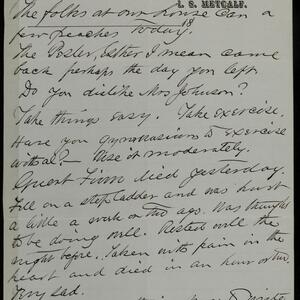 L. S. METCALF.
The folks at our house can a
few peaches today.
The Poster, Esther I mean came
back perhaps the day you left
Do you dislike Mrs Johnson?
Take things easy. Take exercise.
Have you gymnasiums to exercise
withal? Use it moderately.
Finn died yesterday.
Fell on a step ladder and was hurt
a little a week or two ago. Was thought
to be doing well. Rested well the
night before. Taken with pain in the
heart and died in an hour or two.
Very sad.